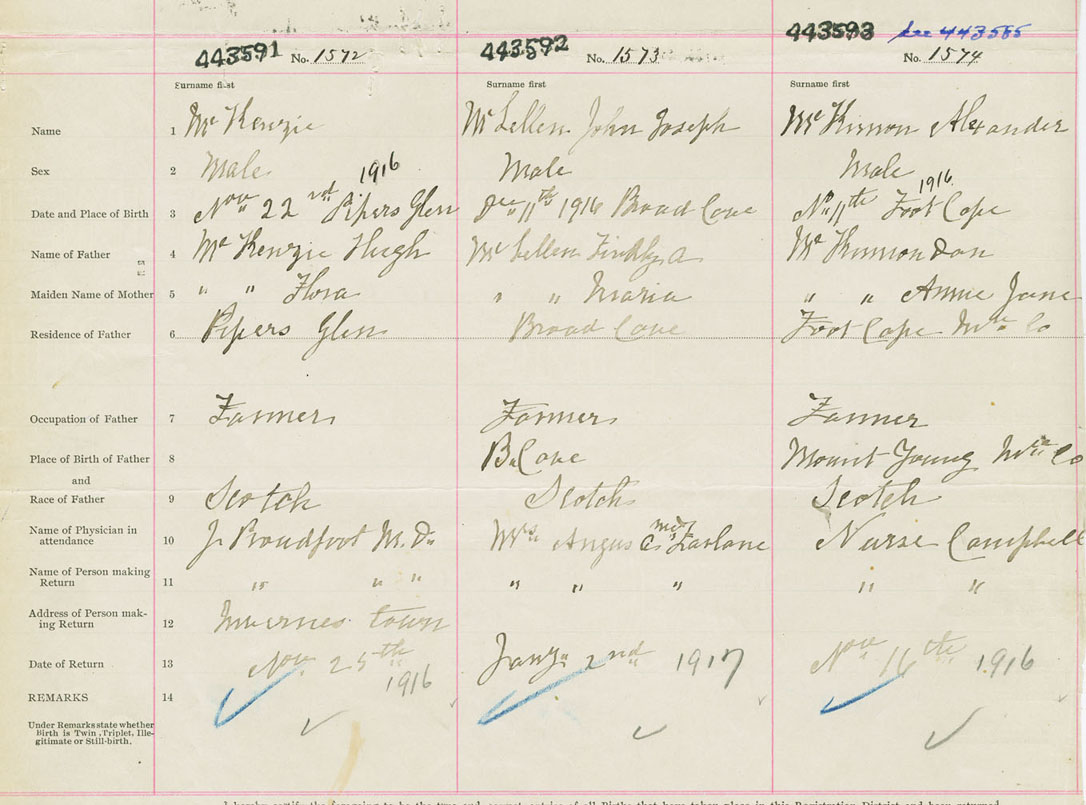 443591 443592 443593 see 443585
No. 1572 No. 1573 No. 1574
Surname first Surname first Surname first
Name 1 Mc Kenzie McLellan John Joseph McKinnon Alexander
Sex 2 Male Male Male
1916 1916
Date and Place of Birth 3 Nov 22nd Pipers Glen Dec 11th 1916 Broad Cove Nov 11th Foot Cape
Name of Father 4 Mc Kenzie Hugh McLellan Findlay A Mc Kinnon Dan
Maiden Name of Mother 5 " " Flora " " Maria " " Annie Jane
Residence of Father 6 Pipers Glen Broad Cove Foot Cape Inv Co
Occupation of Father 7 Farmer Farmer Farmer
Place of Birth of Father 8 B. Cove Mount Young Inv Co
and
Race of Father 9 Scotch Scotch Scotch
Name of Physician in
attendance 10 J Proudfoot M.D. Mrs Angus C. McFarlane Nurse Campbell
Name of Person making
Return 11 " " " " " " " "
Address of Person mak-
ing Return 12 Invernes town
Date of Return 13 Nov 25th 1916 Jany 2nd 1917 Nov 16th 1916
REMARKS 14
Under Remarks state whether
Birth is Twin, Triplet, Ille-
gitimate or Still-birth.
I hereby certify the foregoing to be the true and correct entries of all Births that have taken place in this Registration District and been returned